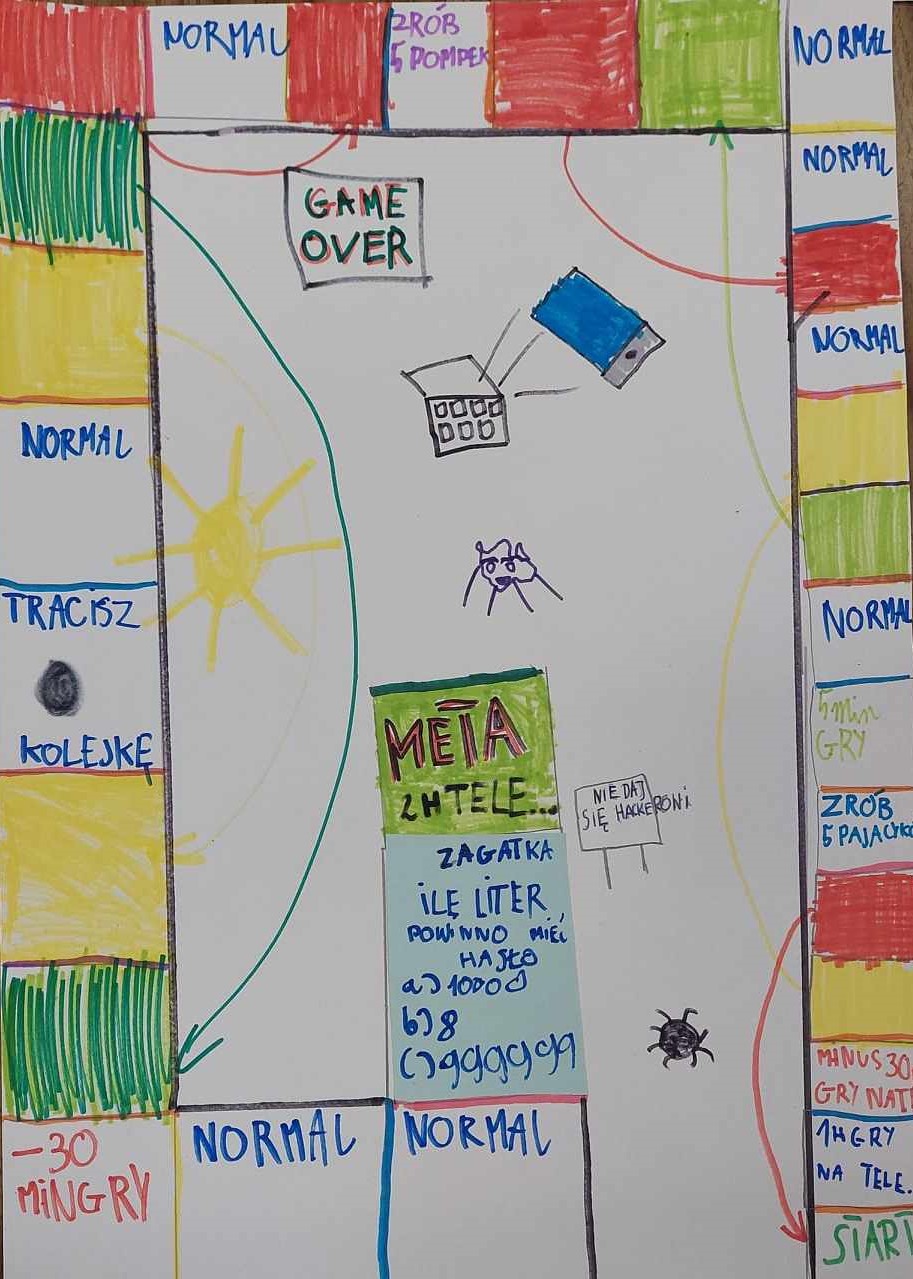 NORMAL
ZRÓB
5 POMPEK
NORMAL
NORMAL
GAME
OVER
NORMAL
NORMAL
TRACISZ
KOLEJKĘ
NORMAL
5 min
GRY
ZRÓB
META
2H TELE...
NIE DAJ
SIĘ HACKERÓWI
ZAGATKA
ILĘ LITER
POWINNO MIEĆ
HASŁO
a) 10000
b) 8
c) 999999
MINUS 30
GRY NA TE
1H GRY
NA TELE.
START
-30
MIN GRY
NORMAL
NORMAL